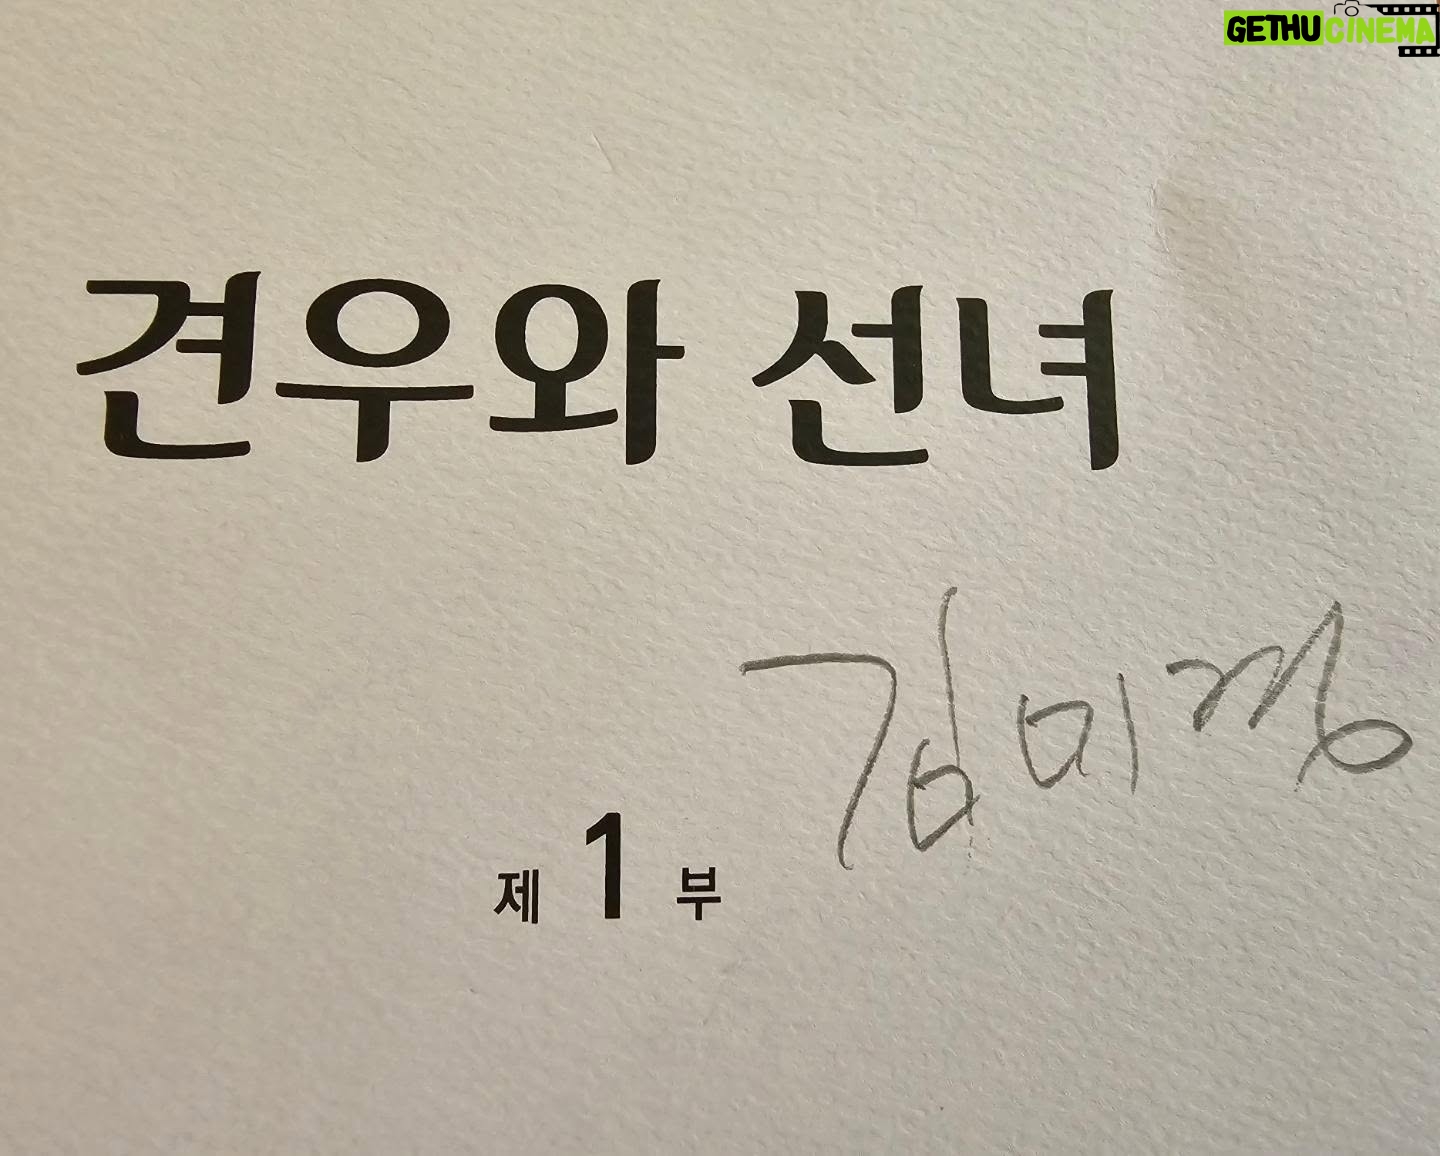 GETHUCINEMA
견우와 선녀
김미경
제 1 부